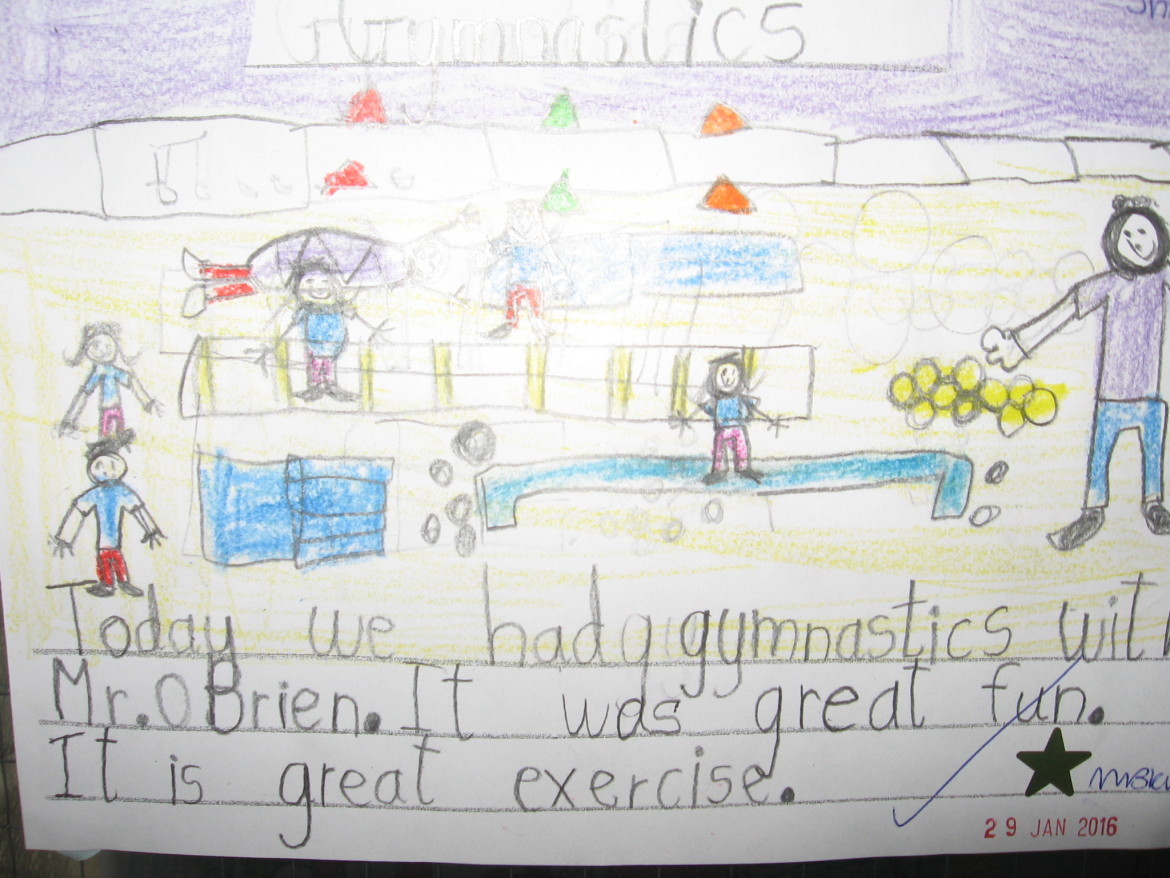 Gymnastics
Today we had gymnastics wit
Mr. O Brien. It was great fun.
It is great exercise.
29 JAN 2016